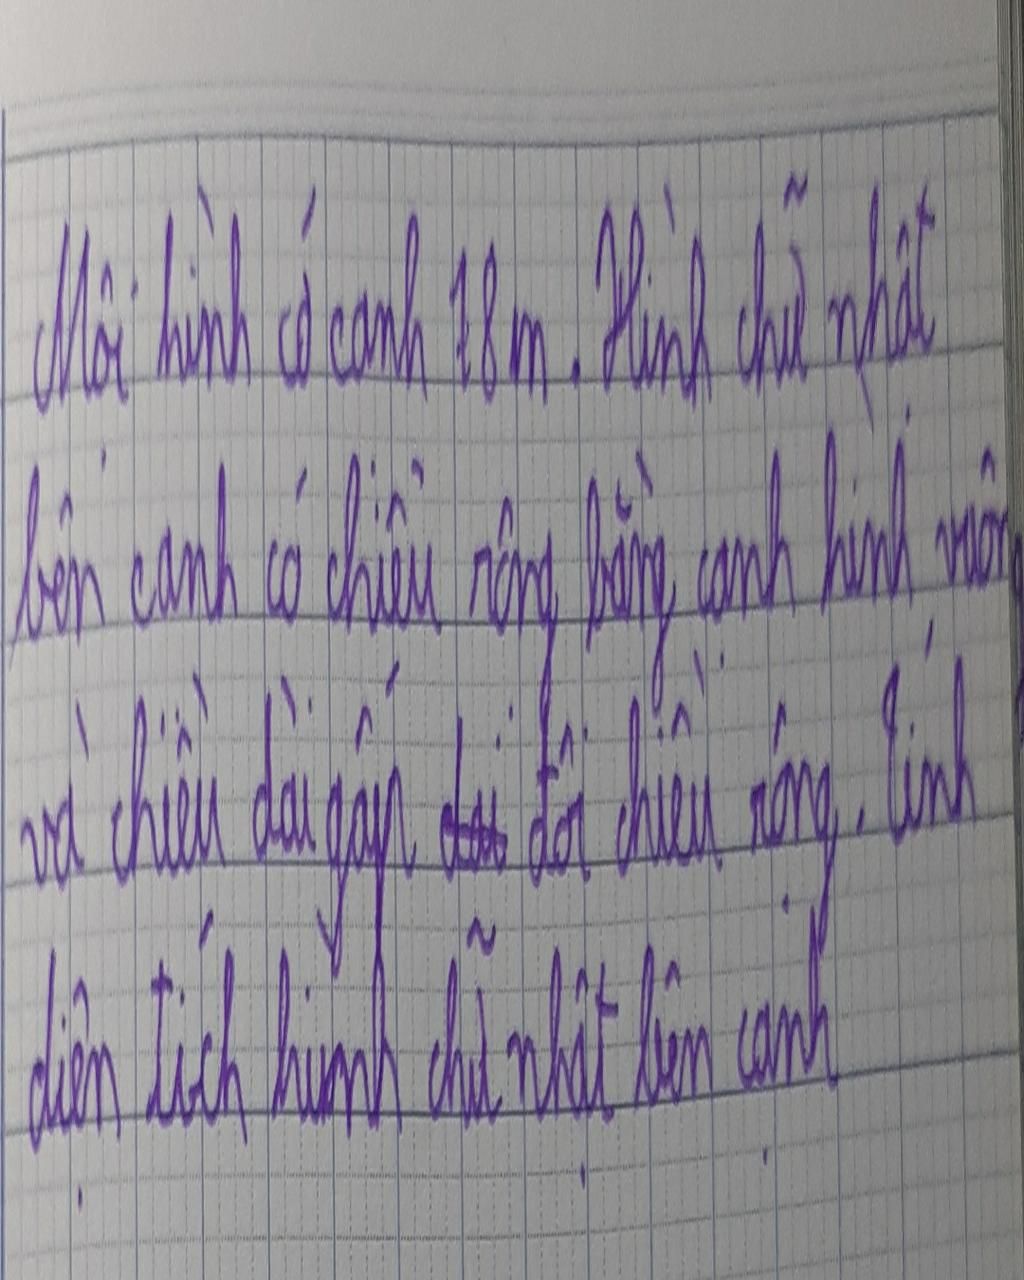 Môi hình có cạnh 18 m. Hình chữ nhật
bên cạnh có chiều rộng bằng cạnh hình vuông
và chiều dài gấp đôi chiều rộng. Tính
diện tích hình chữ nhật bên cạnh